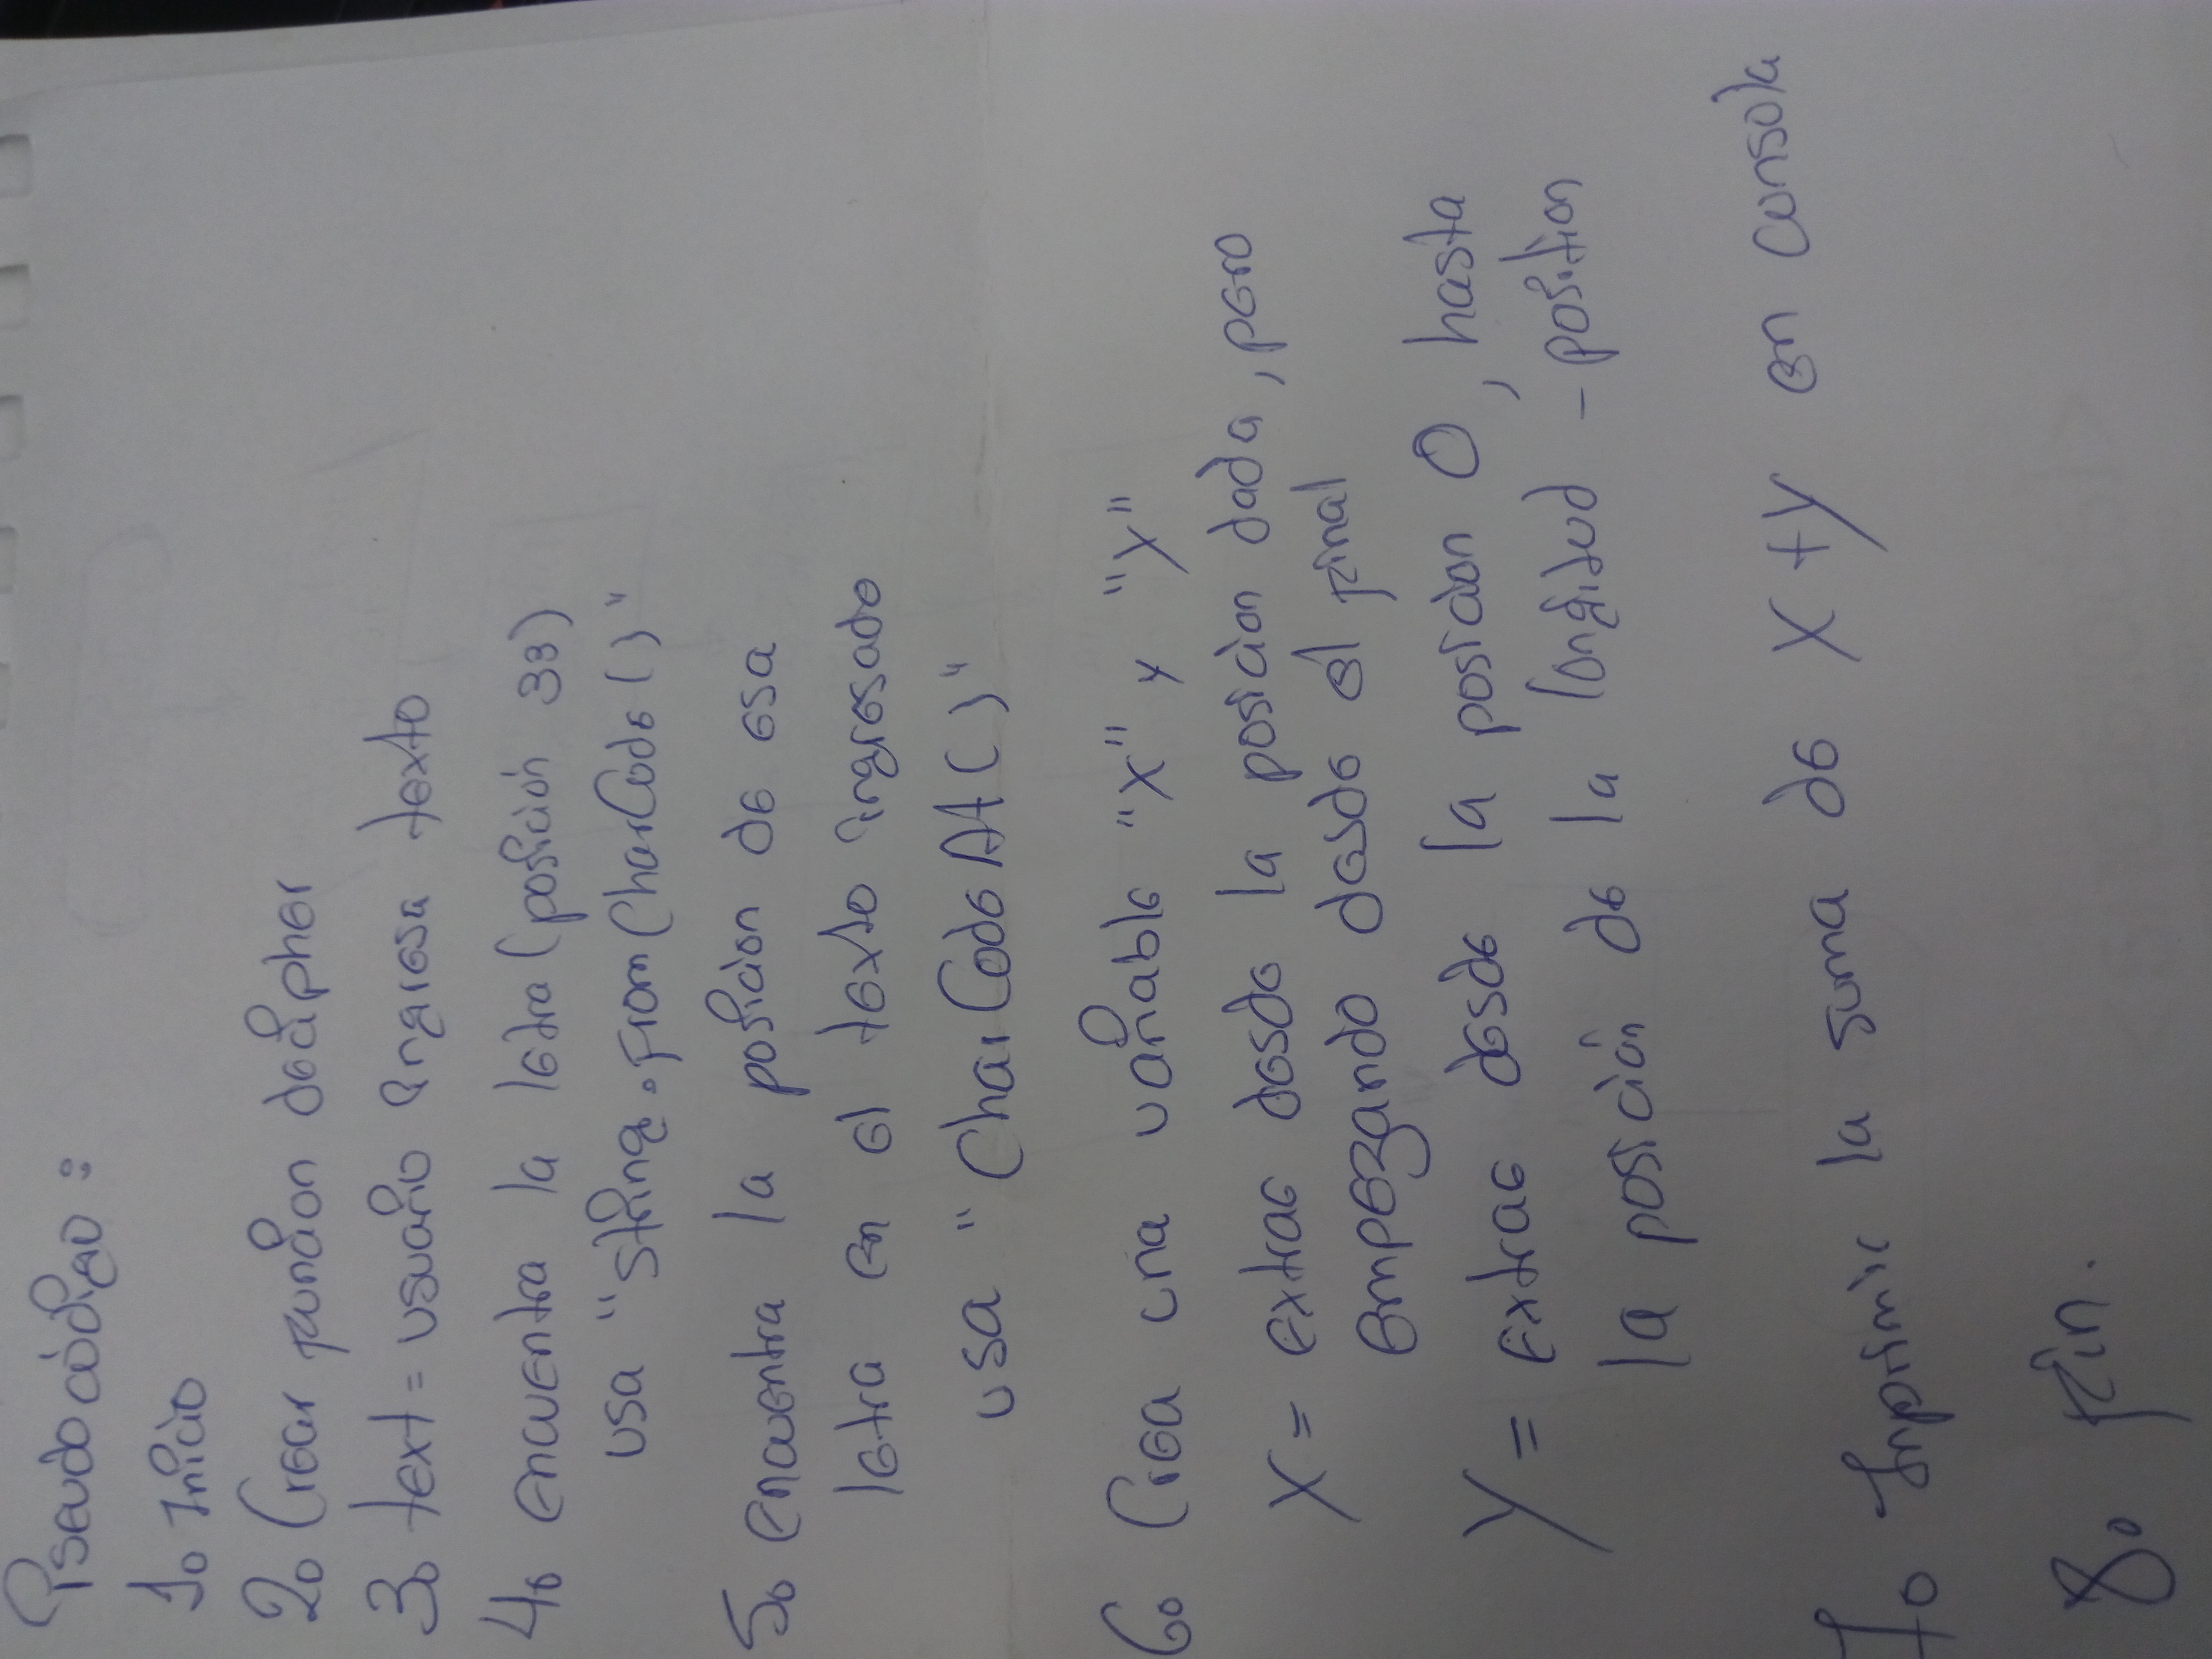 Pseudocódigo :
1. Inicio
2. Crear función decipher
3. text = usuario ingresa texto
4. encuentra la letra (posición 33)
usa "string.FromCharCode()"
5. encuentra la posicion de esa
letra en el texto ingresado
usa "CharCodeAt()"
6. Crea una variable "x" y "y"
X = extrae desde la posicion dada, pero
empezando desde el final
Y = extrae desde la posicion 0, hasta
la posición de la longitud - position
7. Imprimir la suma de X + Y en consola
8. Fin.